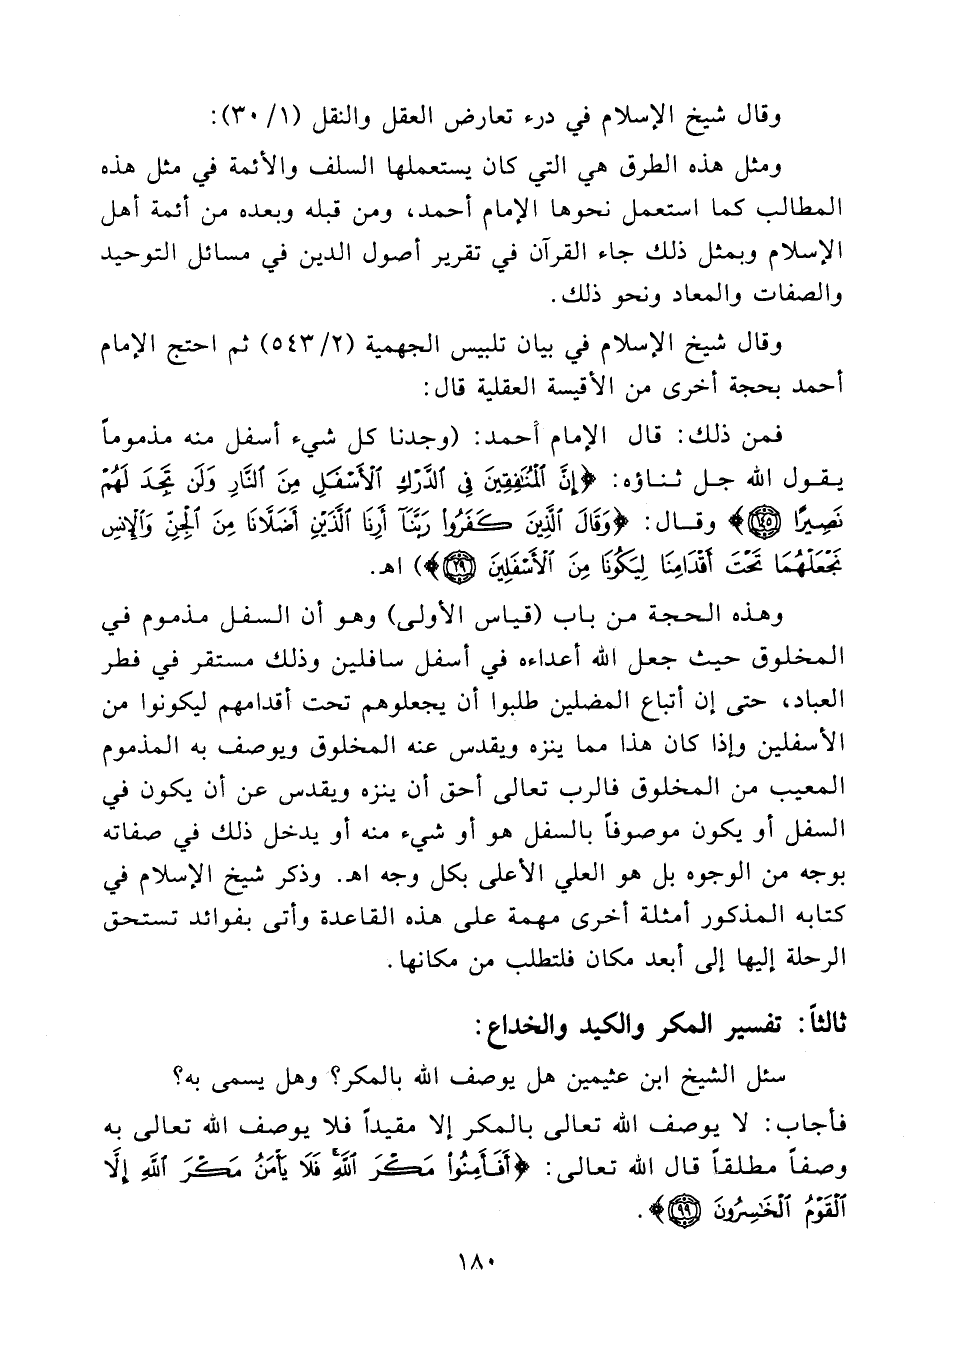 وقال شيخ الإسلام في درء تعارض العقل والنقل (٣٠/١):
ومثل هذه الطرق هي التي كان يستعملها السلف والأئمة في مثل هذه
المطالب كما استعمل نحوها الإمام أحمد، ومن قبله وبعده من أئمة أهل
الإسلام وبمثل ذلك جاء القرآن في تقرير أصول الدين في مسائل التوحيد
والصفات والمعاد ونحو ذلك.
وقال شيخ الإسلام في بيان تلبيس الجهمية (٥٤٣/٢) ثم احتج الإمام
أحمد بحجة أخرى من الأقيسة العقلية قال:
فمن ذلك: قال الإمام أحمد: (وجدنا كل شيء أسفل منه مذموماً
يقول الله جل ثناؤه: ﴿إِنَّ ٱلْمُنَٰفِقِينَ فِى ٱلدَّرْكِ ٱلْأَسْفَلِ مِنَ ٱلنَّارِ وَلَن تَجِدَ لَهُمْ
نَصِيرًا ١٤٥﴾ وقال: ﴿وَقَالَ ٱلَّذِينَ كَفَرُوا۟ رَبَّنَآ أَرِنَا ٱلَّذَيْنِ أَضَلَّانَا مِنَ ٱلْجِنِّ وَٱلْإِنسِ
نَجْعَلْهُمَا تَحْتَ أَقْدَامِنَا لِيَكُونَا مِنَ ٱلْأَسْفَلِينَ ٢٩﴾) اهـ.
وهذه الحجة من باب (قياس الأولى) وهو أن السفل مذموم في
المخلوق حيث جعل الله أعداءه في أسفل سافلين وذلك مستقر في فطر
العباد، حتى إن أتباع المضلين طلبوا أن يجعلوهم تحت أقدامهم ليكونوا من
الأسفلين وإذا كان هذا مما ينزه ويقدس عنه المخلوق ويوصف به المذموم
المعيب من المخلوق فالرب تعالى أحق أن ينزه ويقدس عن أن يكون في
السفل أو يكون موصوفاً بالسفل هو أو شيء منه أو يدخل ذلك في صفاته
بوجه من الوجوه بل هو العلي الأعلى بكل وجه اهـ. وذكر شيخ الإسلام في
كتابه المذكور أمثلة أخرى مهمة على هذه القاعدة وأتى بفوائد تستحق
الرحلة إليها إلى أبعد مكان فلتطلب من مكانها.
ثالثاً: تفسير المكر والكيد والخداع:
سئل الشيخ ابن عثيمين هل يوصف الله بالمكر؟ وهل يسمى به؟
فأجاب: لا يوصف الله تعالى بالمكر إلا مقيداً فلا يوصف الله تعالى به
وصفاً مطلقاً قال الله تعالى: ﴿أَفَأَمِنُوا۟ مَكْرَ ٱللَّهِ ۚ فَلَا يَأْمَنُ مَكْرَ ٱللَّهِ إِلَّا
ٱلْقَوْمُ ٱلْخَٰسِرُونَ ٩٩﴾.
١٨٠